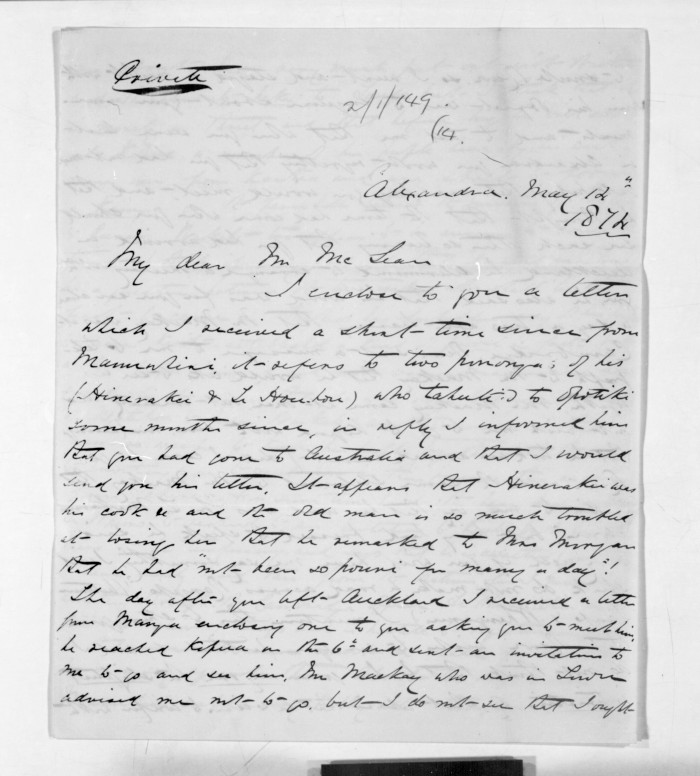 Private
2/1/149.
(14.
Alexandra. May 12"
1874
My dear Mr McLean
I enclose to you a letter
which I received a short time since from
Manuhiri, it refers to two pononga's of his
(Hinerakei & Te Hourhou) who tahuti'd to Opotiki
some months since, in reply I informed him
that you had gone to Australia and that I would
send you his letter. It appears that Hinerakei was
his cook and the old man is so much troubled
at losing her that he remarked to Mrs Morgan
that he had "not been so pouri for many a day"!
The day after you left Auckland I received a letter
from Manga enclosing one to you asking you to meet him,
he reached Kopua on the 6th and sent an invitation to
me to go and see him. Mr Mackay who was in Town
advised me not to go. but I do not see that I ought